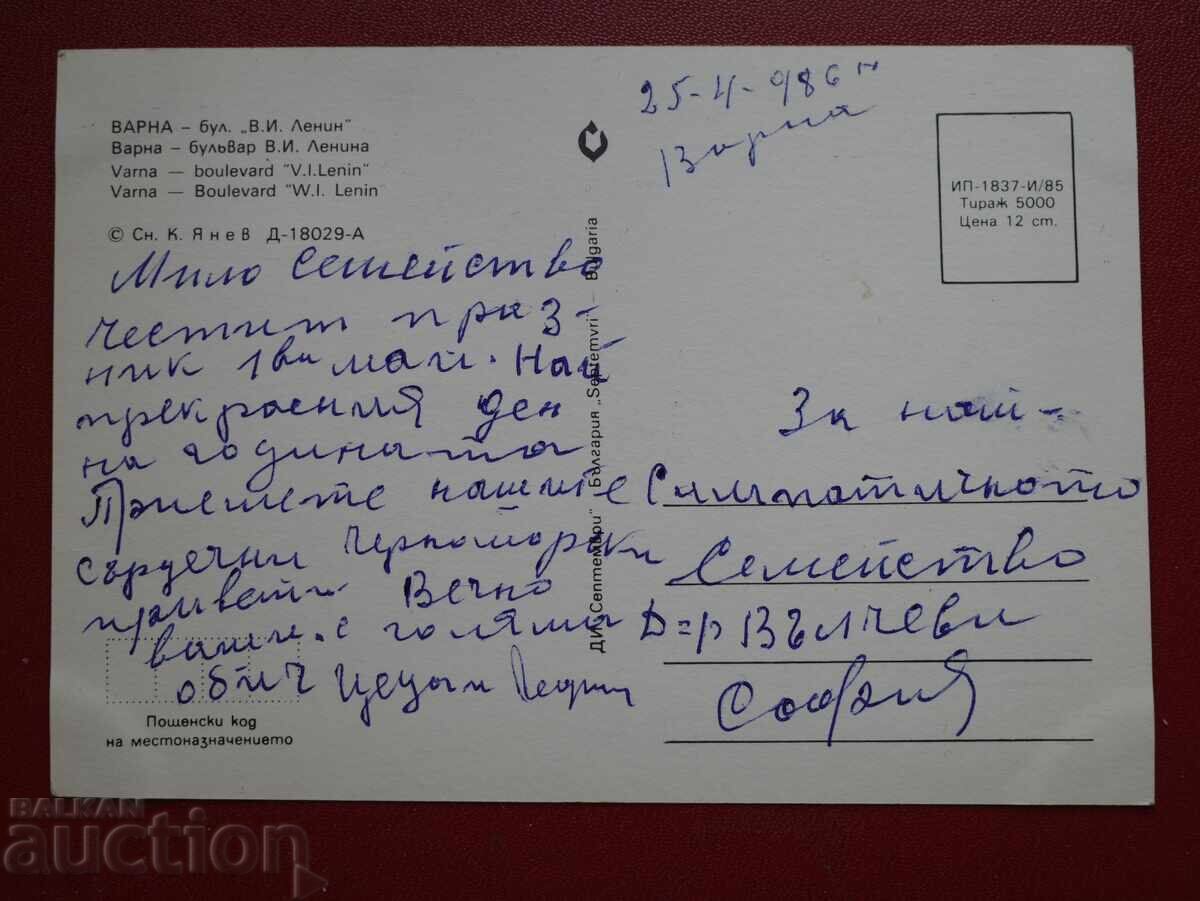 ВАРНА – бул. „В.И. Ленин"
Варна – бульвар В.И. Ленина
Varna — boulevard "V.I.Lenin"
Varna — Boulevard "W.I. Lenin
© Сн. К. Янев Д-18029-А
Мило семейство
честит праз-
ник 1ви май. Най
прекрасния ден
на годината
Приемете нашите
сърдечни черноморски
привети. Вечно
ваши. с голяма
обич Цеци и
Пощенски код
на местоназначението
ДИ „Септември" България „Septemvri" — Bulgaria
25-4-986 г
Варна
ИП-1837-И/85
Тираж 5000
Цена 12 ст.
За най-
Симпатичното
Семейство
Д=р Вълчеви
София
BALKAN
auction